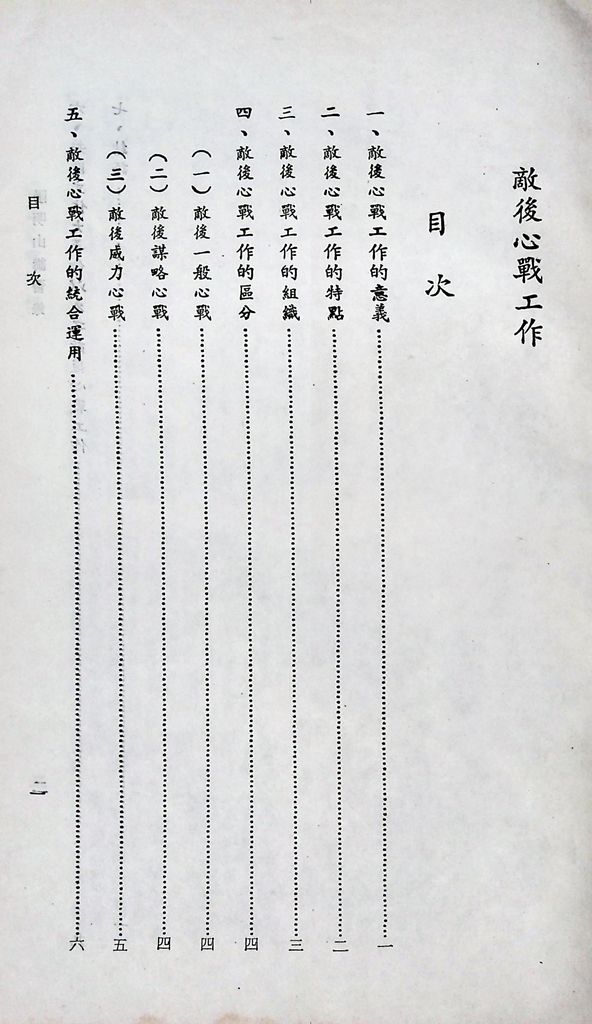 敵後心戰工作
目次
一、敵後心戰工作的意義……一
二、敵後心戰工作的特點……二
三、敵後心戰工作的組織……三
四、敵後心戰工作的區分……四
（一）敵後一般心戰……四
（二）敵後謀略心戰……四
（三）敵後威力心戰……五
五、敵後心戰工作的統合運用……六
目次
二